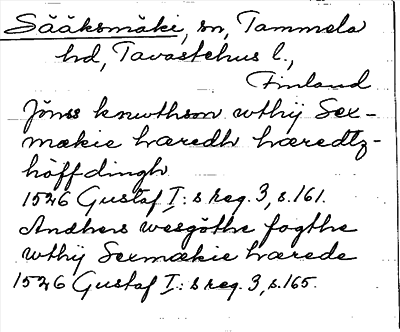 Sääksmäki, sn, Tammela
hd, Tavastehus l.,
Finland
Jönss knwthson wthij Sex-
mækie hæredh hæredtz-
höffdingh
1526 Gustaf I:s reg. 3, s. 161.
Andhers wesgöthe fogthe
wthij Sexmækie hærede
1526 Gustaf I:s reg. 3, s. 165.